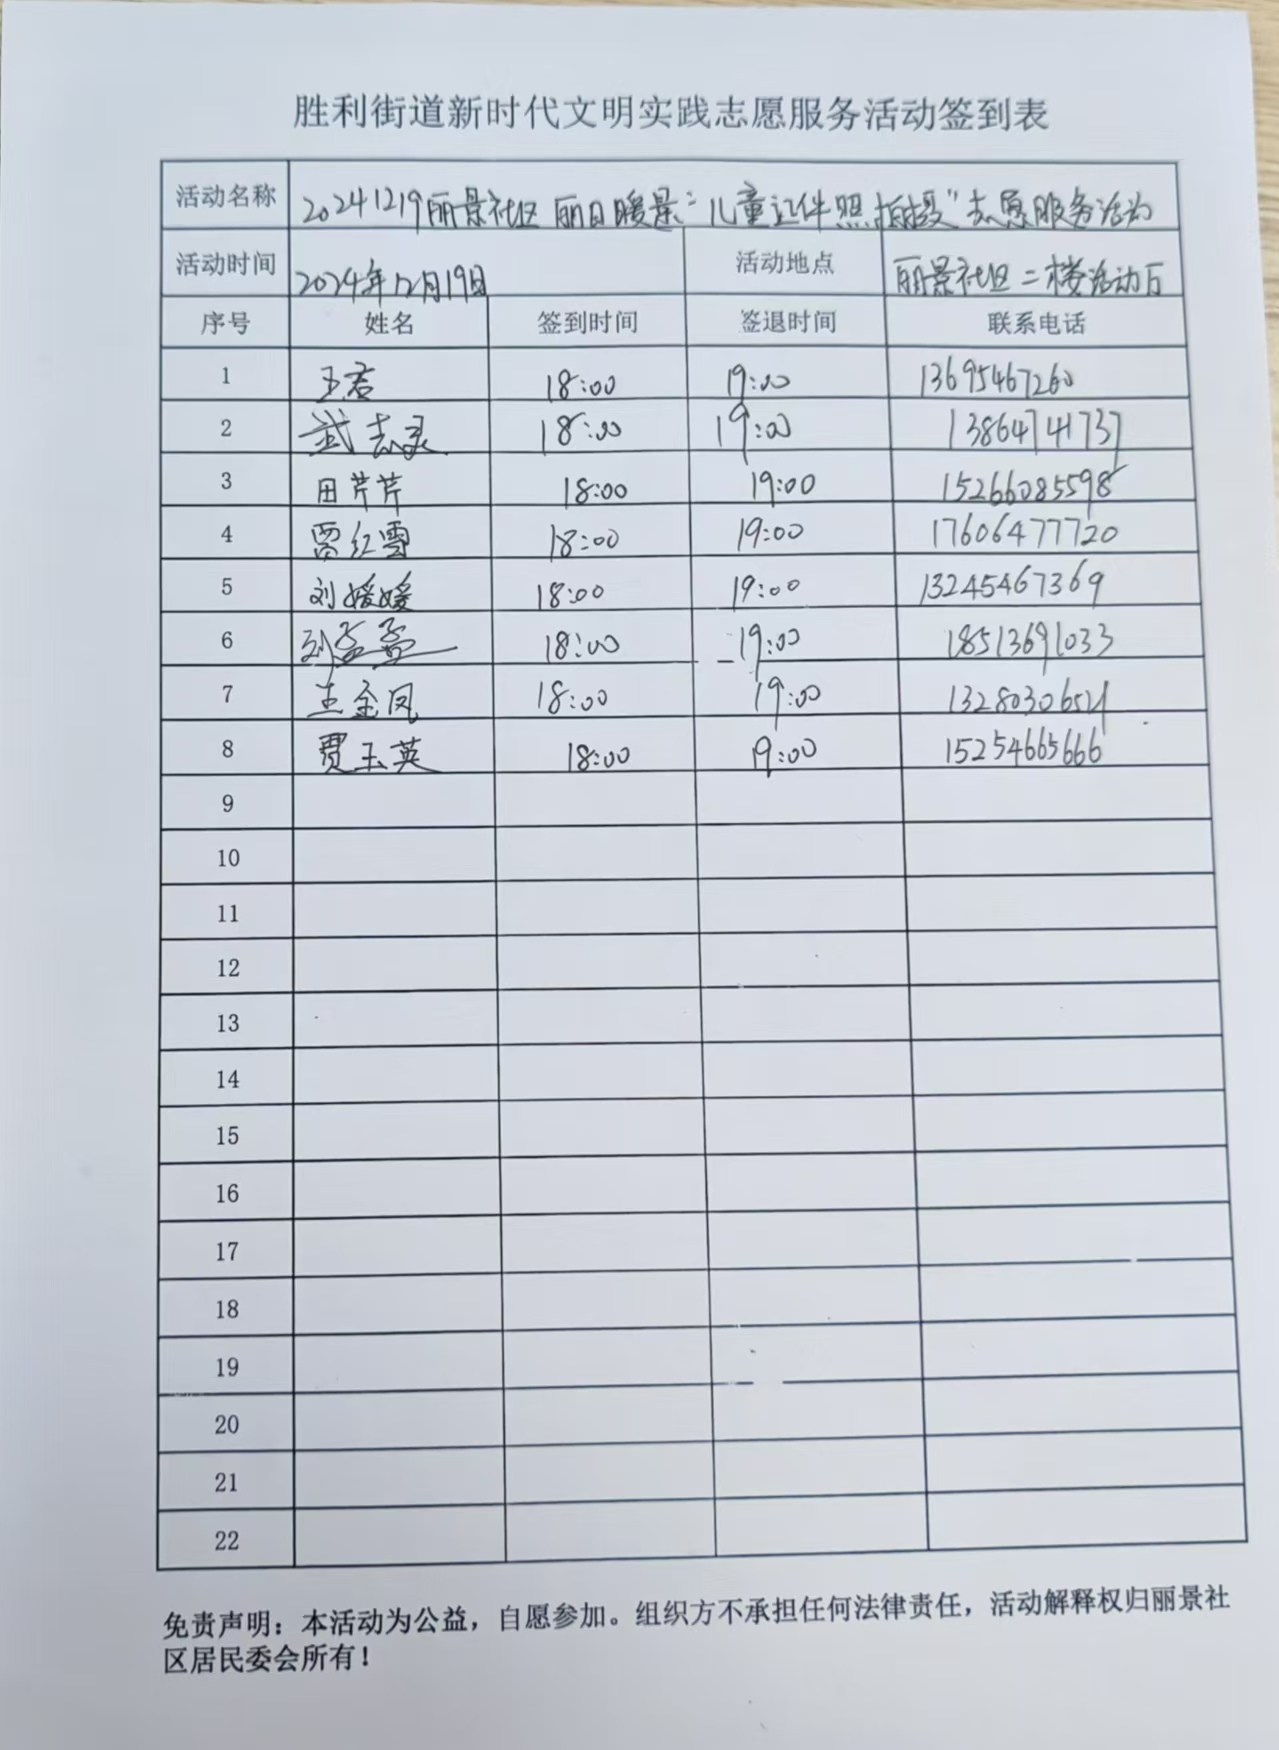 胜利街道新时代文明实践志愿服务活动签到表
活动名称 20241219丽景社区 丽日暖景"儿童证件照拍摄"志愿服务活动
活动时间 2024年12月19日 活动地点 丽景社区二楼活动厅
序号 姓名 签到时间 签退时间 联系电话
1 王君 18:00 19:00 13695467260
2 武志灵 18:00 19:00 13864741737
3 田芹芹 18:00 19:00 15266085598
4 贾红雪 18:00 19:00 17606477720
5 刘媛媛 18:00 19:00 13245467369
6 刘孟孟 18:00 19:00 18513691033
7 王金凤 18:00 19:00
8 贾玉英 18:00 19:00 15254665666
9
10
11
12
13
14
15
16
17
18
19
20
21
22
免责声明：本活动为公益，自愿参加。组织方不承担任何法律责任，活动解释权归丽景社
区居民委会所有！